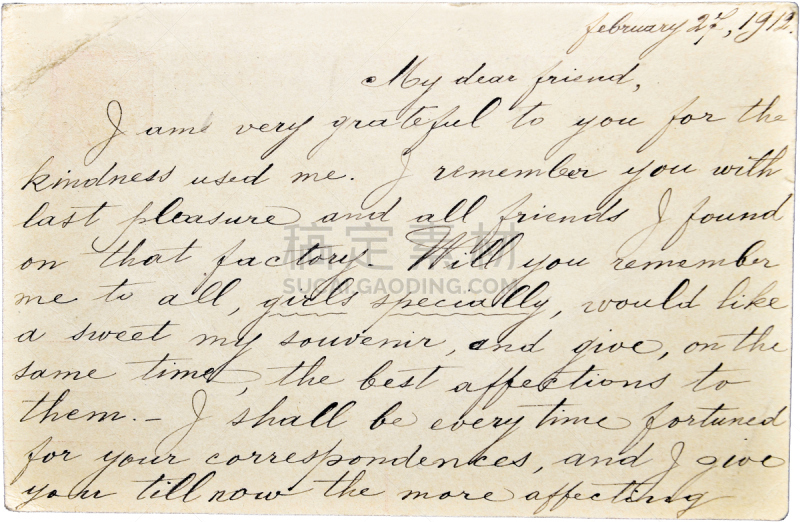 february 2d, 1912.
My dear friend,
I am very grateful to you for the
kindness used me. I remember you with
last pleasure and all friends I found
on that factory. Will you remember
me to all, girls specially, would like
a sweet my souvenir, and give, on the
same time, the best affections to
them. – I shall be every time fortuned
for your correspondences, and I give
you till now the more affecting
稿定素材
SUCAI.GAODING.COM